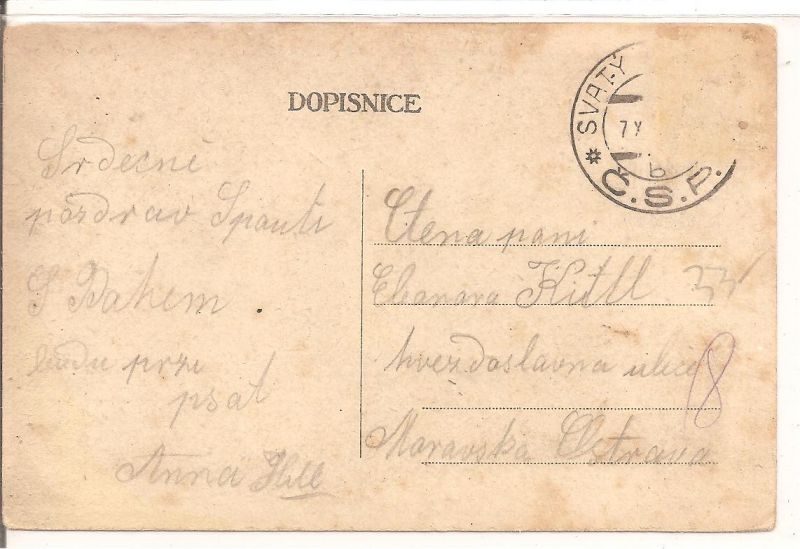 DOPISNICE
* SVATÝ
7 X
b
Č.S.P.
Srdecné
pozdrav
S Bahem.
budu przi
psat
Anna Hill
Ctena pani
Eleanora Kittl
hvezdoslavna ulice
8
Moravska Ostrava